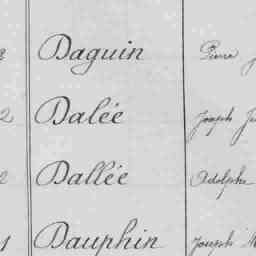 8 Daguin Pierre
2 Dalée Joseph
2 Dallée Adolphe
1 Dauphin Joseph